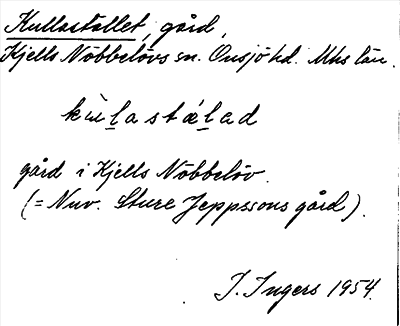 Kullastället, gård,
Kjells Nöbbelövs sn. Onsjö hd. Mhs län.
kùl̲astǽl̲ad
gård i Kjells Nöbbelöv.
(= Nuv. Sture Jeppssons gård).
I. Ingers 1954.